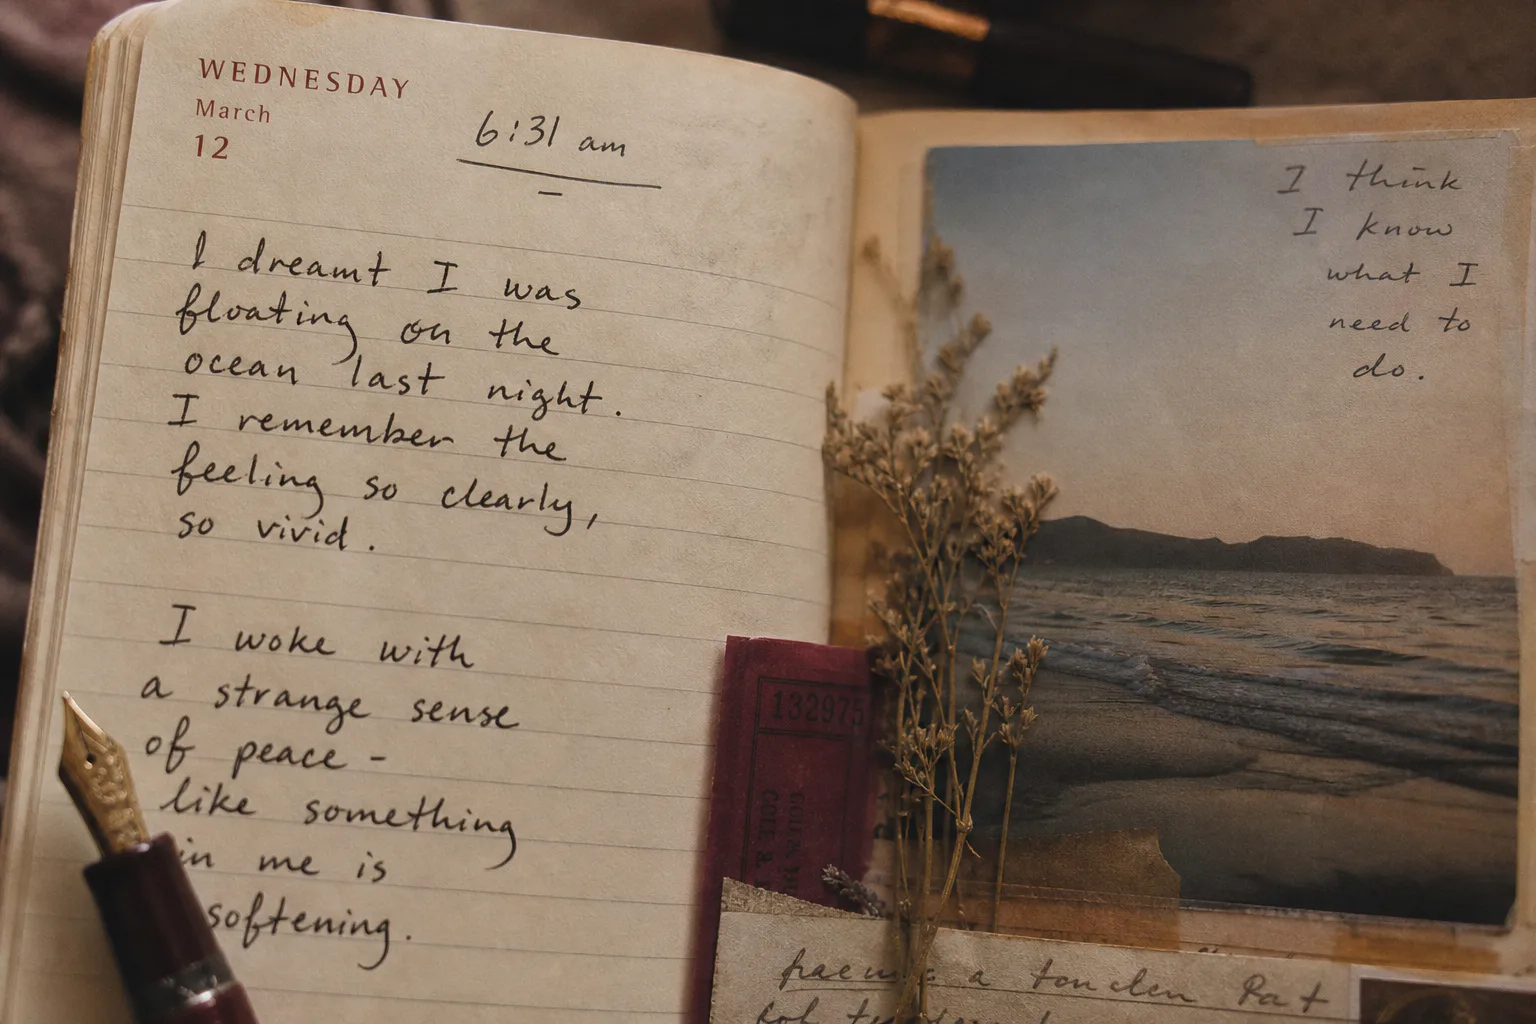 WEDNESDAY
March
12
6:31 am
I dreamt I was
floating on the
ocean last night.
I remember the
feeling so clearly,
so vivid.
I woke with
a strange sense
of peace -
like something
in me is
softening.
I think
I know
what I
need to
do.
132975
a